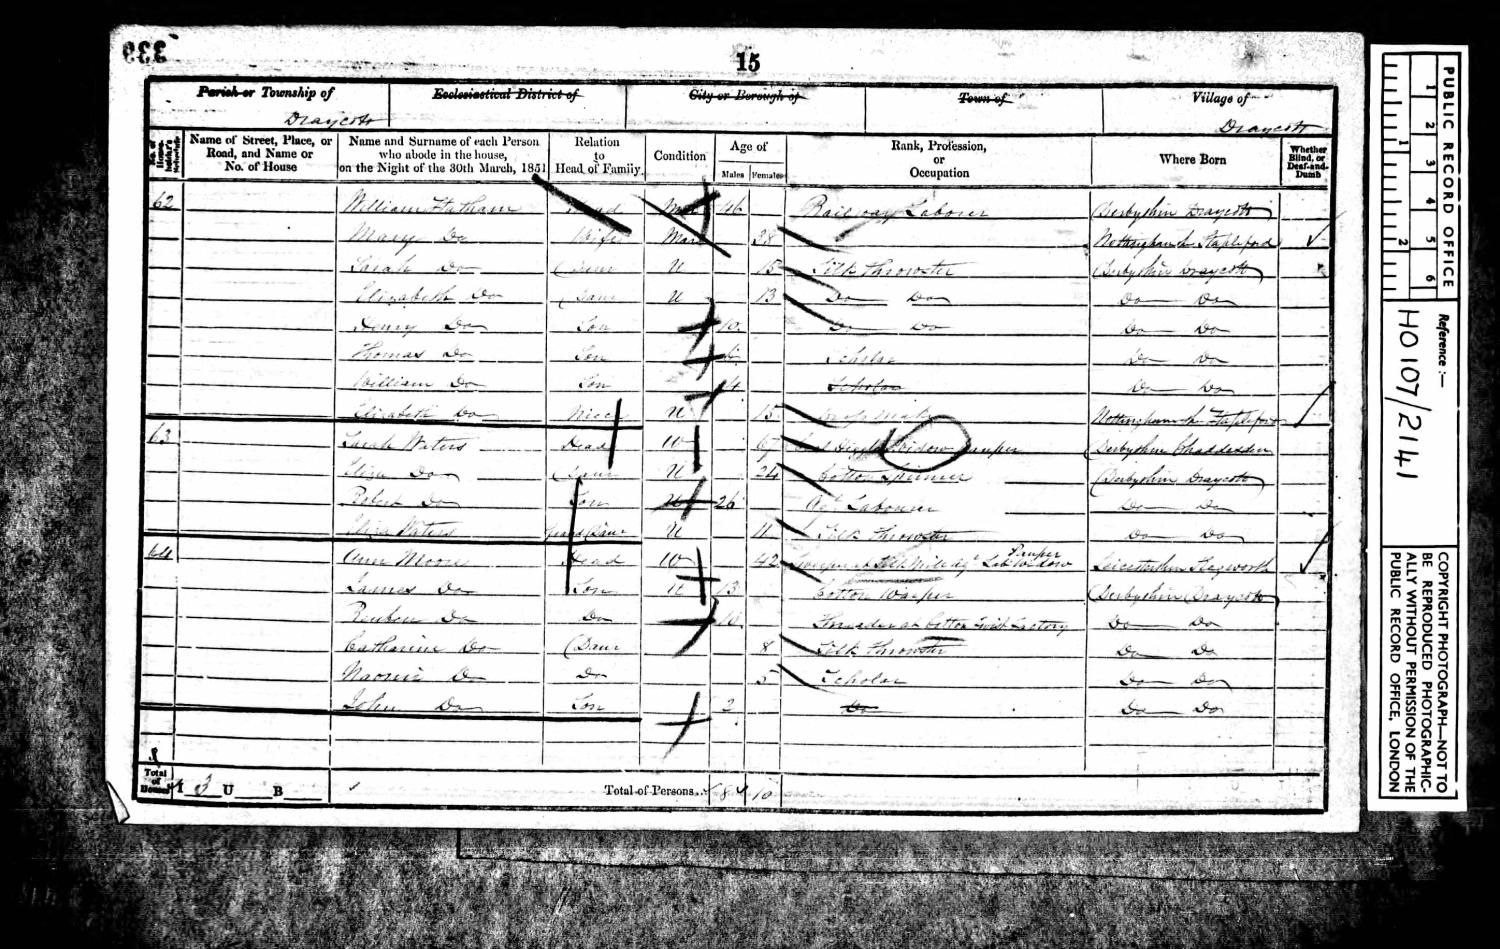 339
15
Parish or Township of Ecclesiastical District of City or Borough of Town of Village of
Draycott Draycott
No. of House-holder's Schedule Name of Street, Place, or Road, and Name or No. of House Name and Surname of each Person who abode in the house, on the Night of the 30th March, 1851 Relation to Head of Family Condition Age of Males Females Rank, Profession, or Occupation Where Born Whether Blind, or Deaf-and-Dumb
62 William Statham Head Mar 46 Railway Labourer Derbyshire Draycott
Mary Do Wife Mar 38 Nottingham Stapleford
Sarah Do Daur U 15 Silk Throwster Derbyshire Draycott
Elizabeth Do Daur U 13 Do Do Do Do
Henry Do Son 10 Do Do Do Do
Thomas Do Son Scholar Do Do
William Do Son 4 Scholar Do Do
Elizabeth Do Niece U 15 Nottingham Stapleford
63 Sarah Waters Head W 67 Widow Pauper Derbyshire Chaddesden
Eliza Do Daur U 24 Cotton Spinner Derbyshire Draycott
Robert Do Son U 26 Ag Labourer Do Do
Eliza Waters Grand Daur U 11 Silk Throwster Do Do
64 Ann Moore Head W 42 Silk Mill Ag Lab Widow Pauper Leicestershire Kegworth
James Do Son U 13 Cotton Warper Derbyshire Draycott
Reuben Do Do 10 Threader at Factory Do Do
Catharine Do Daur 8 Silk Throwster Do Do
Naomi Do Do 5 Scholar Do Do
John Do Son 2 Do Do Do
Total of Houses I 3 U B Total of Persons 8 10
PUBLIC RECORD OFFICE
1 2 3 4 5 6
1 2
Reference :—
HO 107/2141
COPYRIGHT PHOTOGRAPH—NOT TO
BE REPRODUCED PHOTOGRAPHIC-
ALLY WITHOUT PERMISSION OF THE
PUBLIC RECORD OFFICE, LONDON